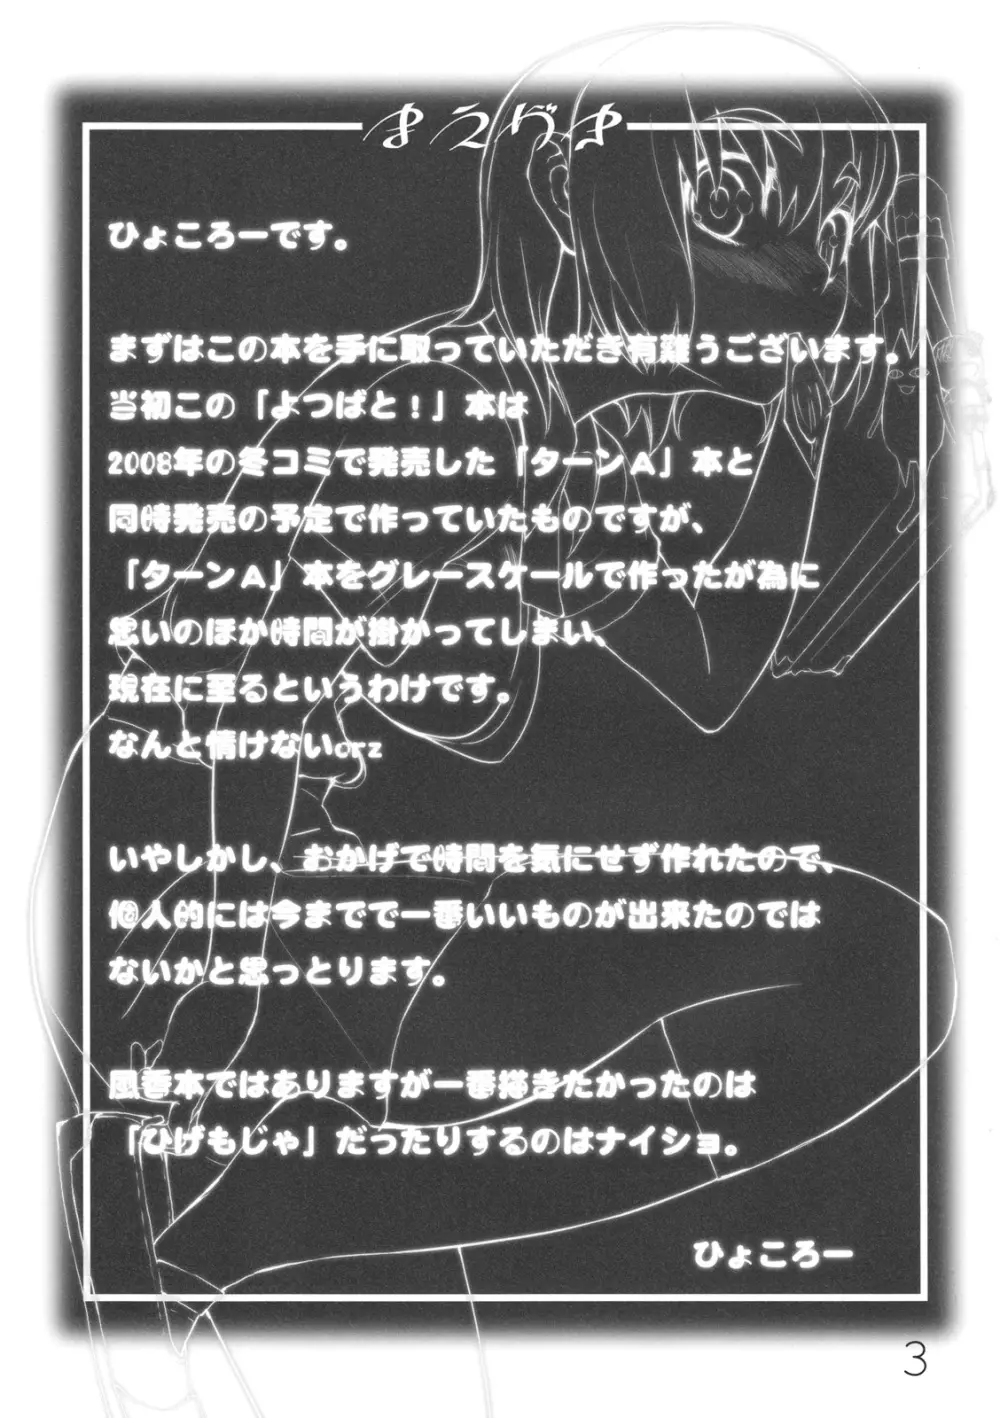 まえがき
ひょころーです。
まずはこの本を手に取っていただき有難うございます。
当初この「よつばと！」本は
2008年の冬コミで発売した「ターンＡ」本と
同時発売の予定で作っていたものですが、
「ターンＡ」本をグレースケールで作ったが為に
思いのほか時間が掛かってしまい、
現在に至るというわけです。
なんと情けないorz
いやしかし、おかげで時間を気にせず作れたので、
個人的には今までで一番いいものが出来たのでは
ないかと思っとります。
風香本ではありますが一番描きたかったのは
「ひげもじゃ」だったりするのはナイショ。
ひょころー
3